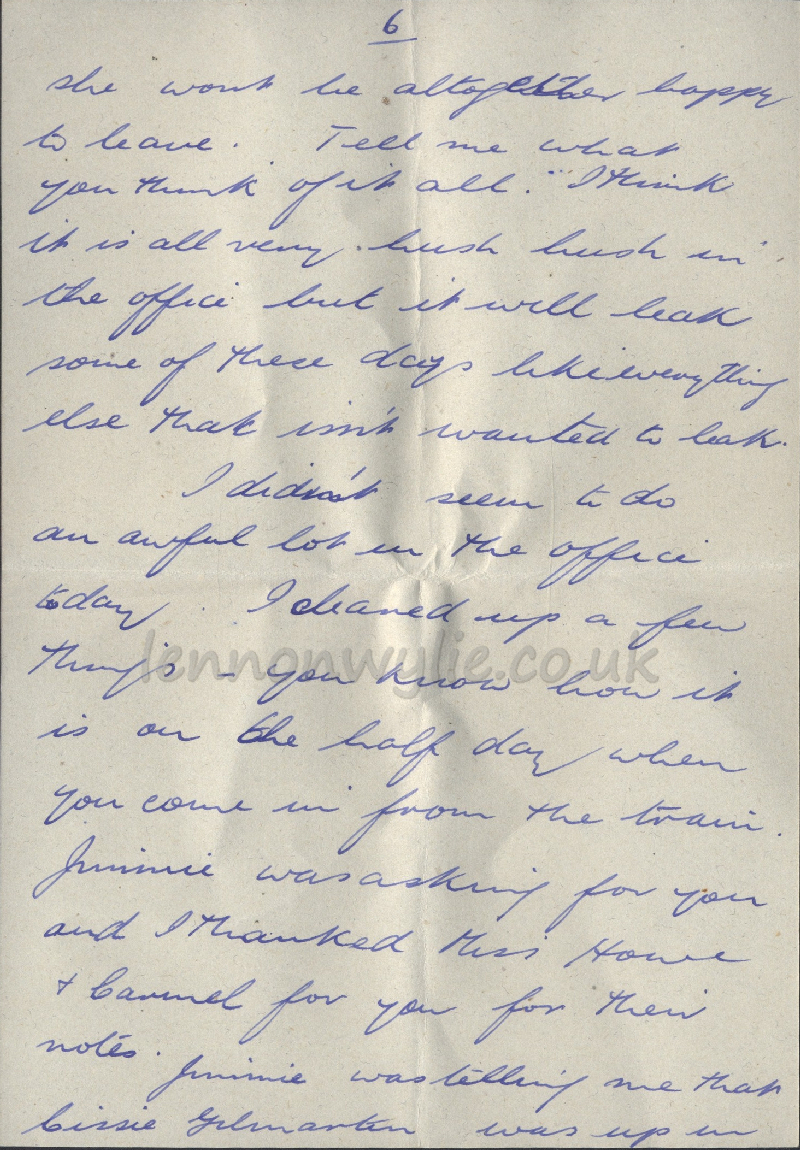 6
she wont be altogether happy
to leave. Tell me what
you think of it all. I think
it is all very hush hush in
the office but it will leak
some of these days like everything
else that isn't wanted to leak.
I didn't seem to do
an awful lot in the office
today. I cleared up a few
things - you know how it
is on the half day when
you come in from the train.
Jimmie was asking for you
and I thanked Miss Howe
+ Carmel for you for their
notes.
Jimmie was telling me that
Cissie Gilmartin was up in
lennonwylie.co.uk